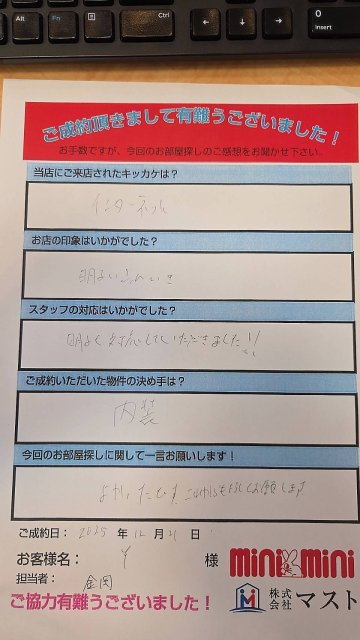 Alt
Fn
Alt
Ctrl
0
Insert
ご成約頂きまして有難うございました！
お手数ですが、今回のお部屋探しのご感想をお聞かせ下さい。
当店にご来店されたキッカケは？
インターネット
お店の印象はいかがでした？
明るいふんいき
スタッフの対応はいかがでした？
明るく対応していただきました!!
ご成約いただいた物件の決め手は？
内装
今回のお部屋探しに関して一言お願いします！
よかったです！これからもよろしくお願いします
ご成約日： 2025 年 12 月 21 日
お客様名： Y 様
mini mini
担当者： 金岡
株式会社 マスト
ご協力有難うございました！